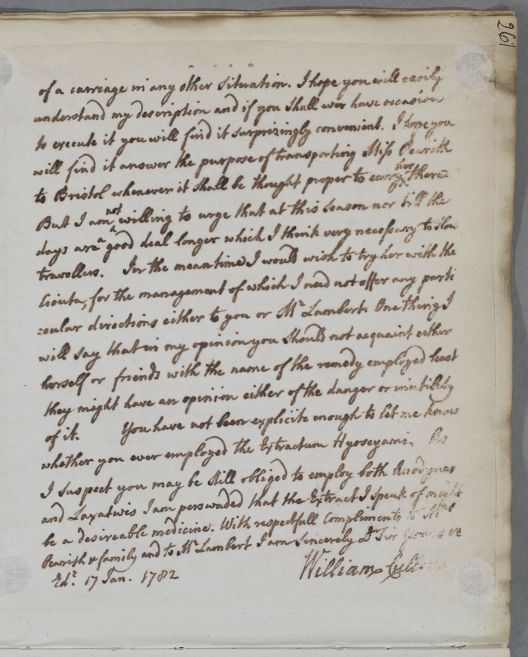 261
of a carriage in any other situation. I hope you will easily
understand my description and if you shall ever have occasion
to execute it you will find it surprizingly convenient. I hope you
will find it answer the purpose of transporting Miss Pearith
to Bristol whenever it shall be thought proper to carry her there
But I am not willing to urge that at this season nor till the
days are a good deal longer which I think very necessary to slow
travellers. In the meantime I would wish to try her with the
Cicuta, for the management of which I need not offer any parti
=cular directions either to you or Mr Lambert. One thing I
will say that in my opinion you should not acquaint either
herself or friends with the name of the remedy employed least
they might have an opinion either of the danger or inutility
of it. You have not been explicite enough to let me know
whether you ever employed the Extractum Hyoscyami. As
I suspect you may be still obliged to employ both Anodynes
and Laxatives I am perswaded that the Extract I speak of might
be a desireable medicine. With respectfull Compliments to Mrs
Pearith & family and to Mr Lambert I am Sincerely D Sir Yours &c
Edr 17 Jan. 1782
William Cullen